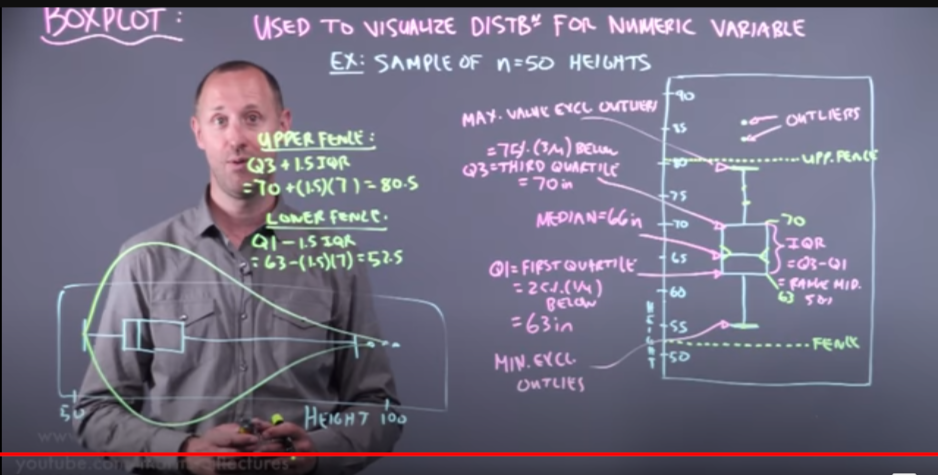 BOXPLOT:
USED TO VISUALIZE DISTBⁿ FOR NUMERIC VARIABLE
EX: SAMPLE OF n=50 HEIGHTS
UPPER FENCE:
Q3 + 1.5 IQR
= 70 + (1.5)(7) = 80.5
LOWER FENCE.
Q1 - 1.5 IQR
= 63 - (1.5)(7) = 52.5
50
HEIGHT
100
MAX. VALUE EXCL OUTLIERS
= 75%. (3/4) BELOW
Q3 = THIRD QUARTILE
= 70 in
MEDIAN = 66 in
Q1 = FIRST QUARTILE
= 25%. (1/4)
BELOW
= 63 in
MIN. EXCL.
OUTLIES
90
85
80
75
70
65
60
55
50
HEIGHT
OUTLIERS
UPP. FENCE
70
IQR
= Q3-Q1
= RANGE MID.
50%
63
FENCE
www.
youtube.com/
lectures